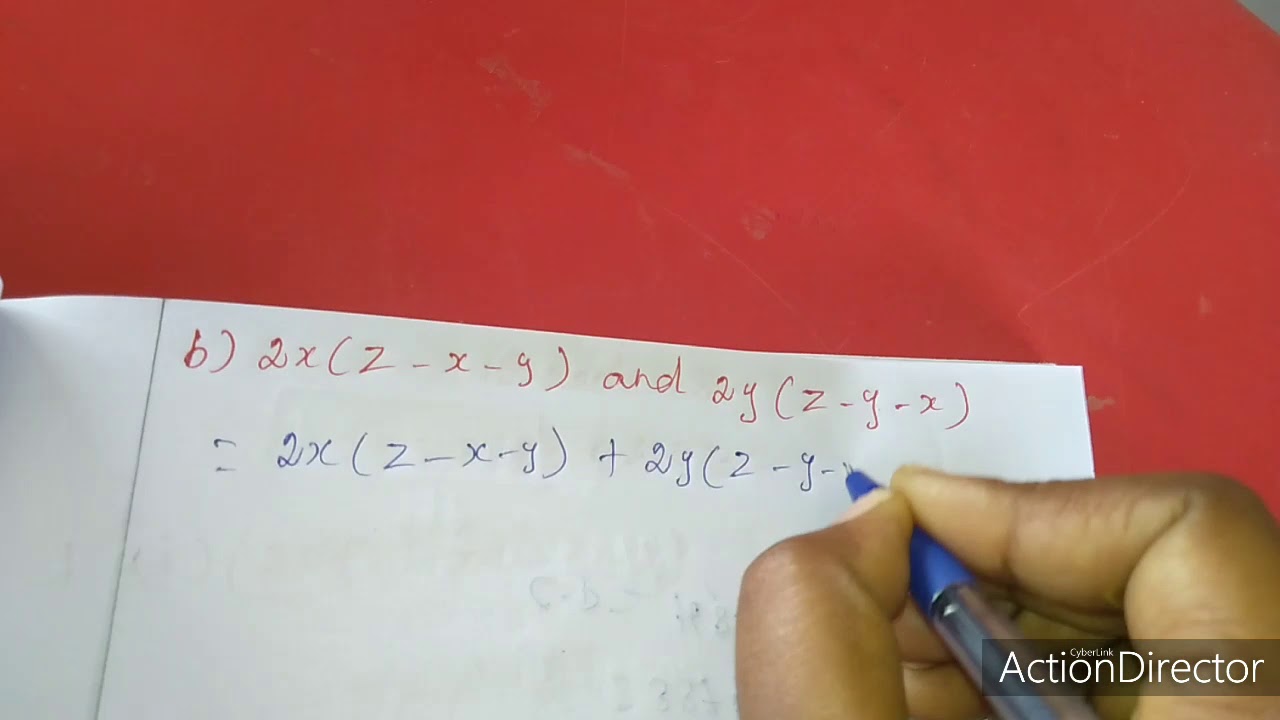 b) 2x(z - x - y) and 2y(z - y - x)
= 2x(z - x - y) + 2y(z - y -
CyberLink
ActionDirector